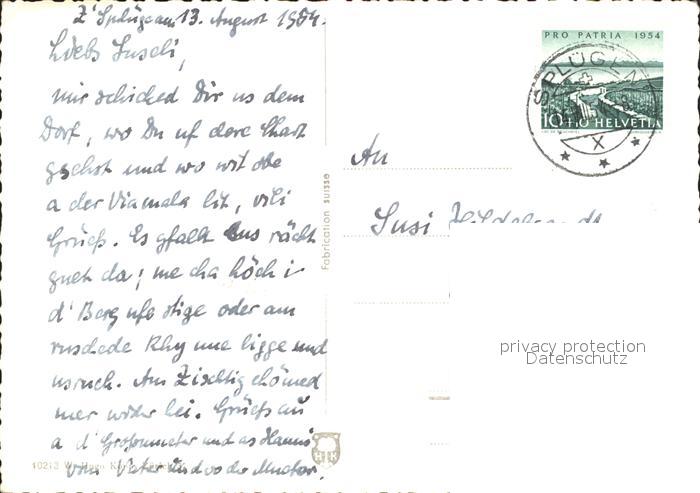 Z'Splüge am 13. August 1954.
Liebs Suseli,
mir schicked Dir us dem
Dorf, wo Du uf dere Chart
gsehst und wo wit obe
a der Viamala lit, vili
Grüeß. Es gfallt eus rächt
guet da; me cha höch i
d'Berg ufe stige oder am
ruschede Rhy une ligge und
usrueh. Am Zischtig chömed
mer wider hei. Grüeß au
a d'Grossmueter und as Hanni
vom Vater und vo der Mueter.
An
Susi
PRO PATRIA 1954
10+10 HELVETIA
SPLÜGEN
X
Fabrication suisse
privacy protection
Datenschutz
10213
H K